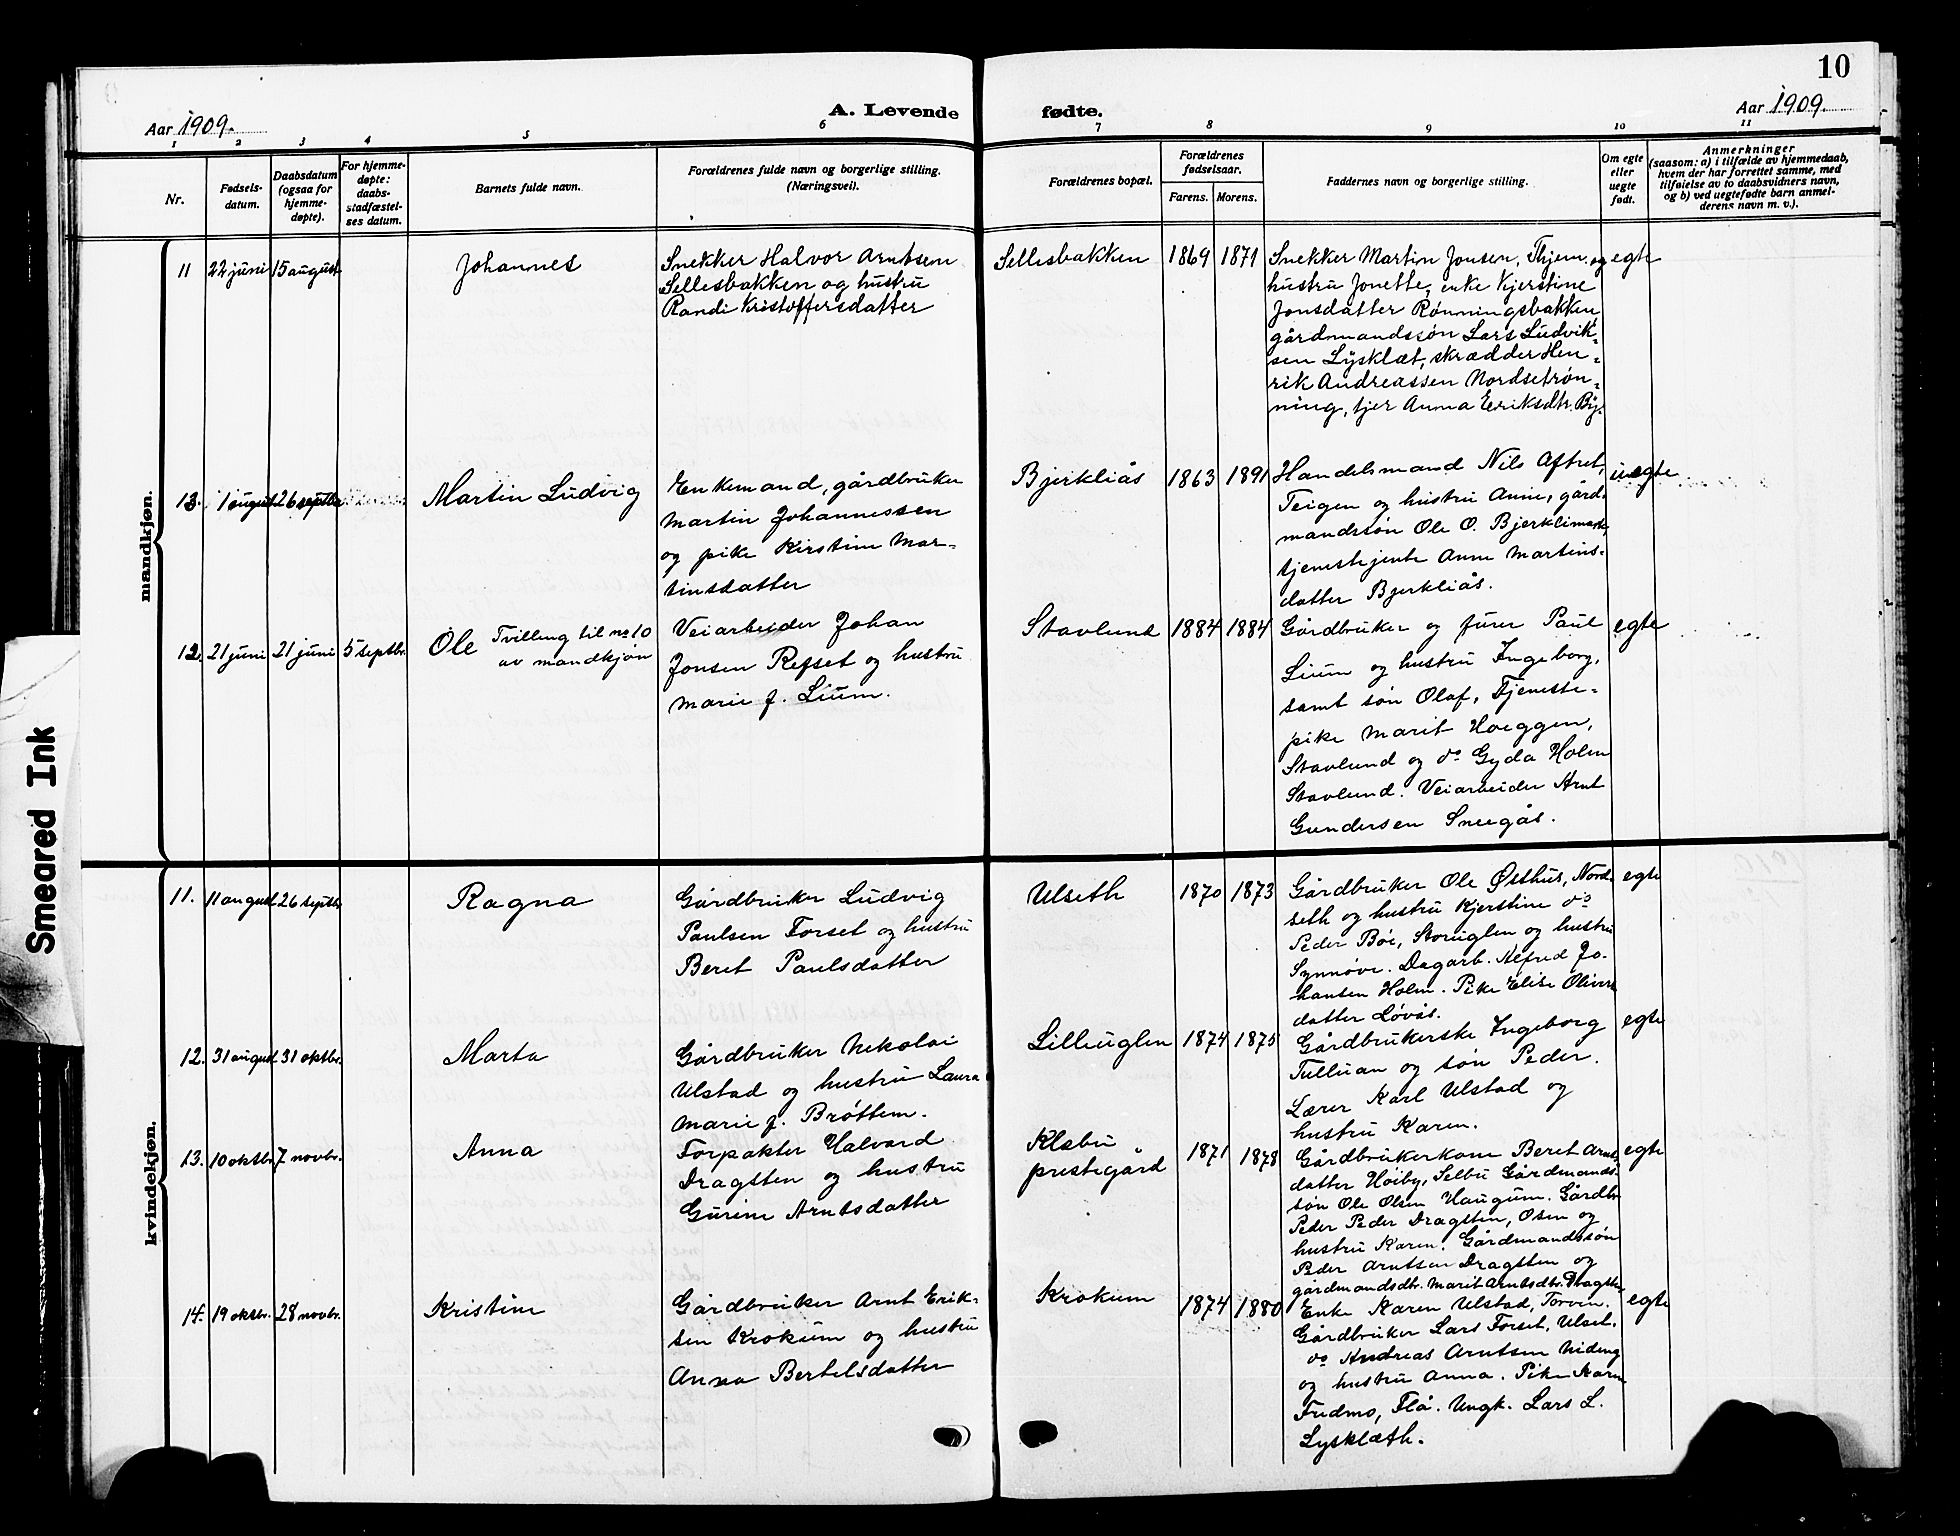 10
Aar 1909.
A. Levende fødte.
Aar 1909.
1 2 3 4 5 6 7 8 9 10 11
Nr.
Fødsels-
datum.
Daabsdatum
(ogsaa for
hjemme-
døpte).
For hjemme-
døpte:
daabs-
stadfæstel-
ses datum.
Barnets fulde navn.
Forældrenes fulde navn og borgerlige stilling.
(Næringsvei).
Forældrenes bopæl.
Forældrenes
fødselsaar.
Farens. Morens.
Faddernes navn og borgerlige stilling.
Om egte
eller
uegte
født.
Anmerkninger
(saasom: a) i tilfælde av hjemmedaab,
hvem der har forrettet samme, med
tilføielse av to daabsvidners navn,
og b) ved uegtefødte barn anmel-
derens navn m. v.).
mandkjøn.
11 22 juni 15 august
Johannes
Snekker Halvor Arntsen
Sellesbakken og hustru
Randi Kristoffersdatter
Sellesbakken 1869 1871
Snekker Martin Jonsen, Thjem og
hustru Jonette, enke Kjerstine
Jonsdatter Rønningsbakken,
gårdmandssøn Lars Ludvik-
sen Lysklæt, skrædder Hen-
rik Andreassen Nordsetrøn-
ning, tjer Anna Eeriksdtr. By-
egte
13. 1 august 26 septbr
Martin Ludvig
Enkemand, gårdbruker
Martin Johannessen
og pike Kirstine Mar-
tinsdatter
Bjerkliås 1863 1891
Handelsmand Nils Aftret,
Teigen og hustru Anne, gård-
mandssøn Ole O. Bjerklimark,
tjenestejente Anne Martins-
datter Bjerkliås.
uegte
12. 21 juni 21 juni 5 septbr.
Ole Tvilling til no 10
av mandkjøn
Veiarbeider Johan
Jonsen Refset og hustru
Marie f. Lium.
Stavlund 1884 1884
Gårdbruker og furer Paul
Lium og hustru Ingeborg,
samt søn Olaf, Tjeneste-
pike Marit Hoeggen,
Stavlund og do Gyda Holm
Stavlund. Veiarbeider Arnt
Gundersen Sneegås.
egte
kvindekjøn.
11. 11 august 26 septbr.
Ragna
Gårdbruker Ludvig
Paulsen Forset og hustru
Beret Paulsdatter
Ulseth 1870 1873
Gårdbruker Ole Østhus, Nord-
seth og hustru Kjerstine do
Peder Bøe, Storuglen og hustru
Synnøve. Dagarb. Alfred Jo-
hansen Holm. Pike Elise Olivers
datter Løvås.
egte
12. 31 august 31 oktbr.
Marta
Gårdbruker Nikolai
Ulstad og hustru Laura
Marie f. Brøttem.
Lilleuglen 1874 1875
Gårdbrukerske Ingeborg
Tulluan og søn Peder.
Lærer Karl Ulstad og
hustru Karen.
egte
13. 10 oktbr. 7 novbr.
Anna
Forpakter Halvard
Dragsten og hustru
Gurine Arntsdatter
Klæbu
prestegård
1871 1878
Gårdbrukerkone Beret Arnts-
datter Høiby, Selbu Gårdmands-
søn Ole Olsen Haugum. Gårdbr.
Peder Peder Dragsten, Osen og
hustru Karen. Gårdmandssøn
Peder Arntsen Dragsten og
gårdmandsdtr. Marit Arntsdtr. Dragsten
egte
14. 19 oktbr. 28 novbr.
Kristine
Gårdbruker Arnt Erik-
sen Krokum og hustru
Anna Bertelsdatter
Krokum 1874 1880
Enke Karen Ulstad, Torvin.
Gårdbruker Lars Forset, Ulset.
do Andreas Arntsen Nideng
og hustru Anna. Pike Karen
Fredmo, Flå. Ungk. Lars L.
Lysklæth.
egte
Smeared Ink